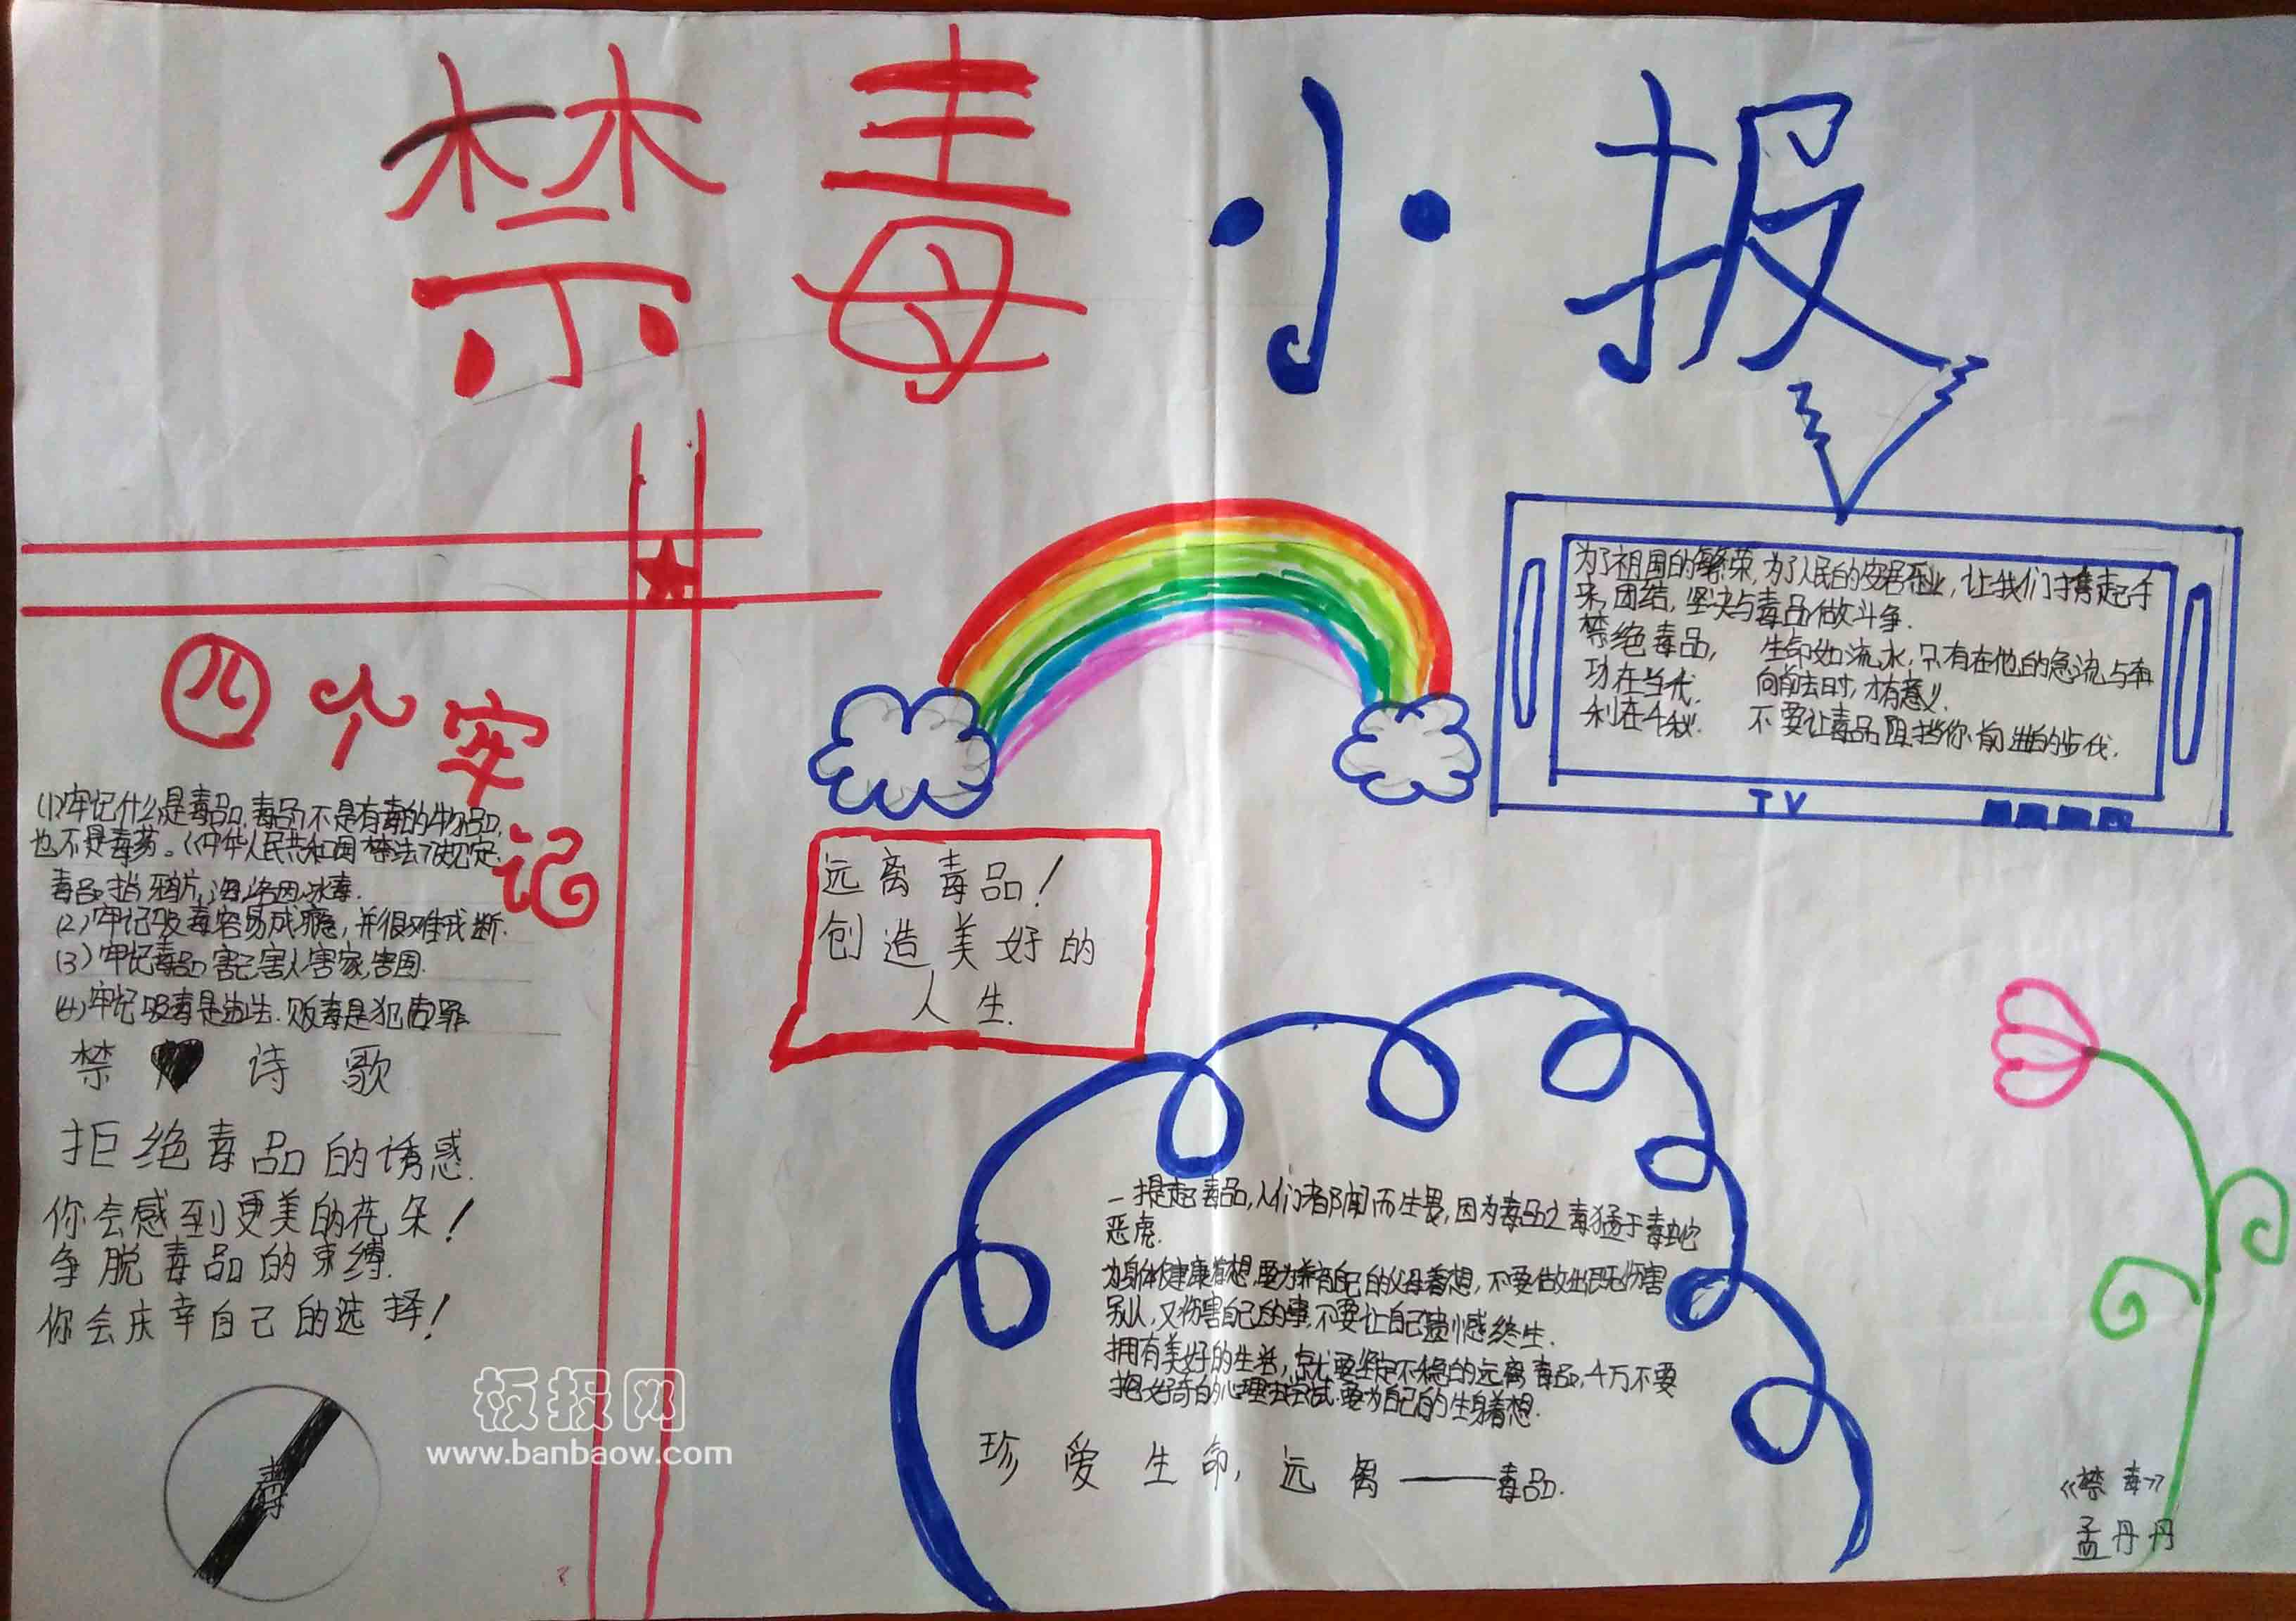 禁毒小报
四个牢记
(1)牢记什么是毒品,毒品不是有毒的物品,
也不是毒药。《中华人民共和国禁法》规定.
毒品指鸦片,海洛因,冰毒.
(2)牢记吸毒容易成瘾,并很难戒断.
(3)牢记毒品害己害人害家,害国.
(4)牢记吸毒是违法.贩毒是犯罪
禁 诗歌
拒绝毒品的诱惑.
你会感到更美的花朵!
争脱毒品的束缚.
你会庆幸自己的选择!
毒
板报网
www.banbaow.com
远离毒品!
创造美好的
人生.
为了祖国的繁荣,为了人民的安居乐业,让我们携起手
来,团结,坚决与毒品做斗争.
禁绝毒品,
功在当代.
利在千秋.
生命如流水,只有在他的急流与奔
向前去时,才有意义.
不要让毒品阻挡你前进的步伐.
TV
一提起毒品,人们都闻而生畏,因为毒品之毒猛于毒蛇
恶虎.
为身体健康着想,要为养育自己的父母着想,不要做出既伤害
别人,又伤害自己的事,不要让自己遗憾终生.
拥有美好的生活,就要坚定不移的远离毒品,千万不要
抱好奇的心理去尝试.要为自己的生身着想.
珍爱生命,远离——毒品.
《禁毒》
孟丹丹